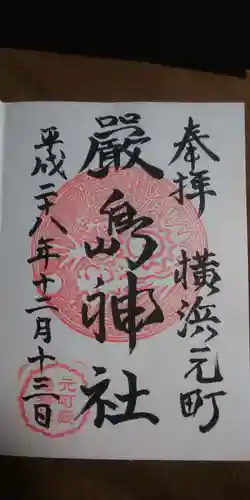 奉拝 横浜元町
嚴島神社
平成二十八年十二月十三日
元町嚴